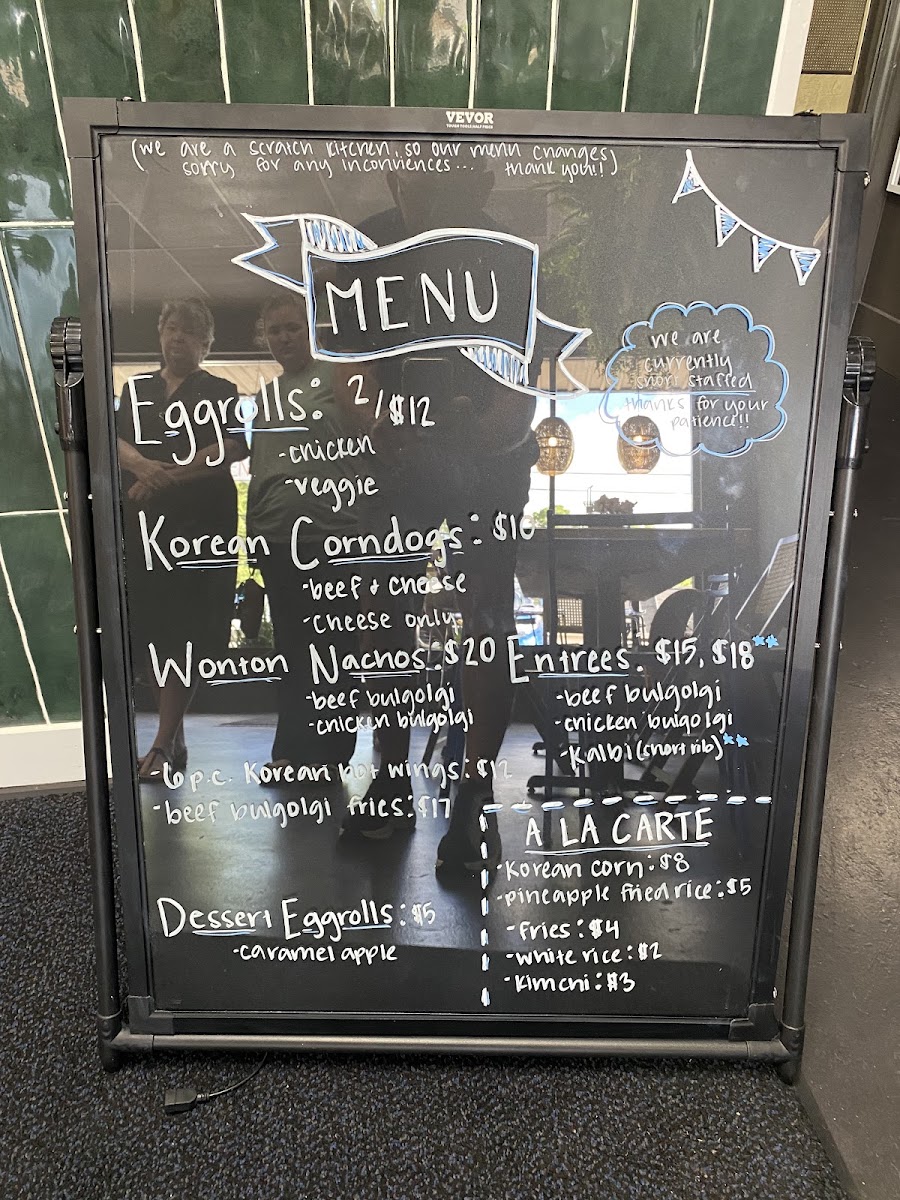 VEVOR
(we are a scratch kitchen, so our menu changes,
sorry for any inconviences... thank you!!)
MENU
we are
currently
short staffed
thanks for your
patience!!
Eggrolls: 2/$12
-chicken
-veggie
Korean Corndogs: $10
-beef & cheese
-cheese only
Wonton Nachos: $20
-beef bulgolgi
-chicken bulgolgi
Entrees: $15, $18**
-beef bulgolgi
-chicken bulgolgi
-Kalbi (short rib)**
-6 p.c. Korean hot wings: $12
-beef bulgolgi fries: $17
A LA CARTE
-Korean corn: $8
-pineapple fried rice: $5
-fries: $4
-white rice: $2
-kimchi: $3
Dessert Eggrolls: $5
-caramel apple